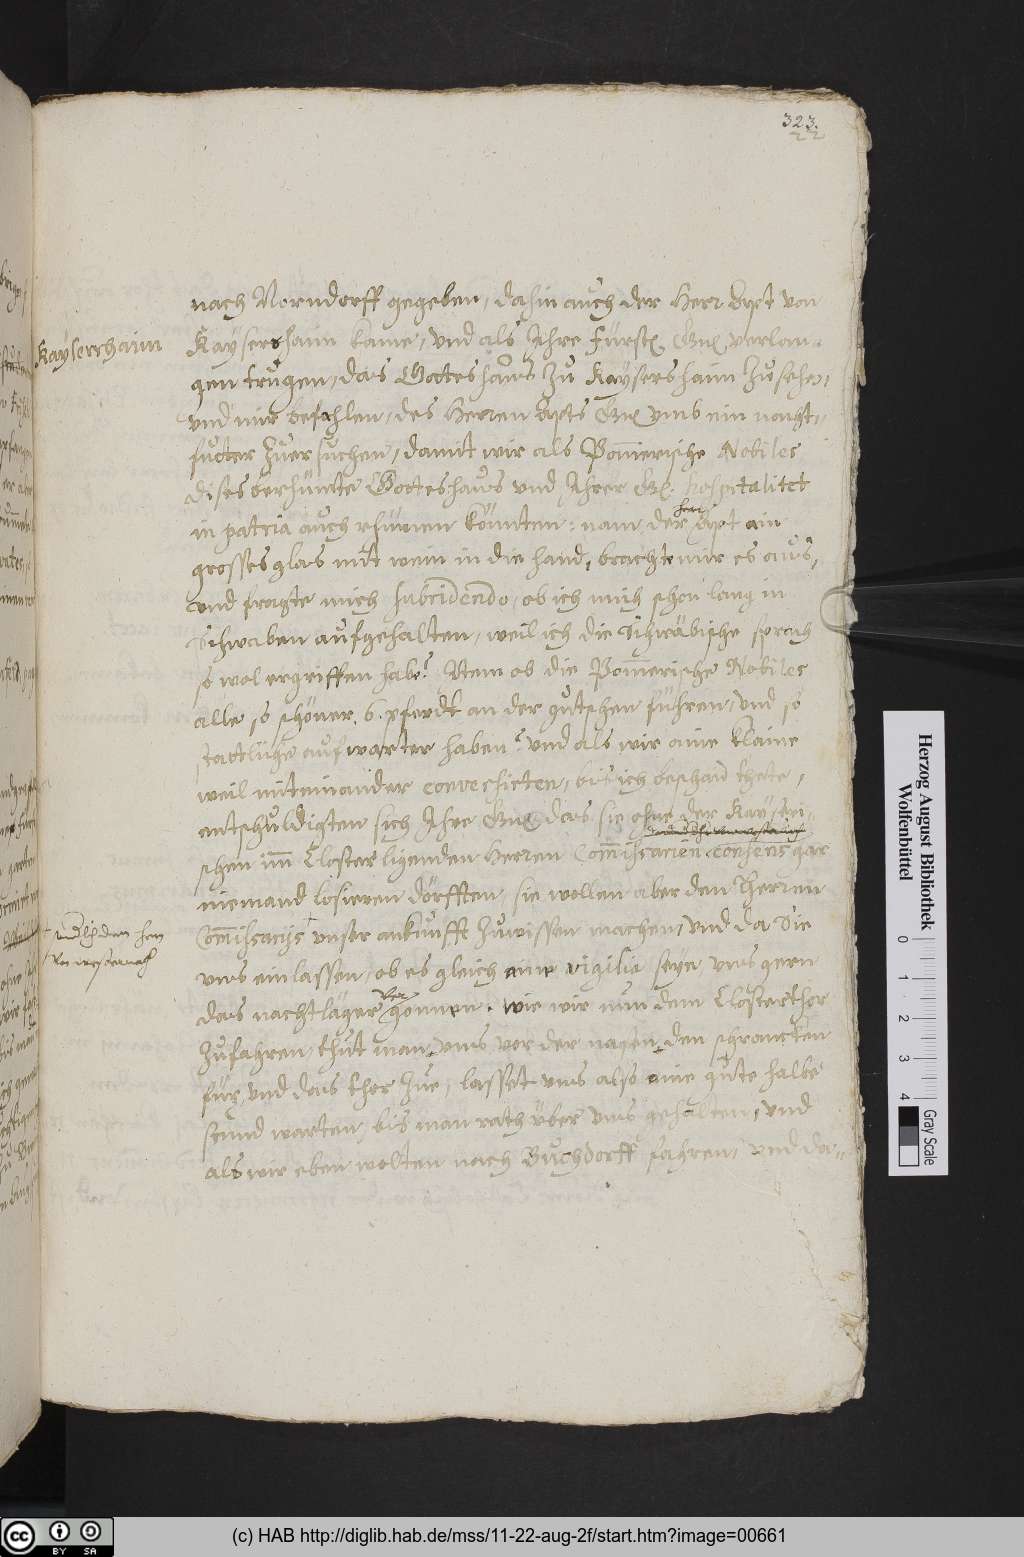 323.
nach Norndorff gegeben, dahin auch der Herr Apt von
Kaysershaim
Kaysershaim kame, und als Ihre Fürstl. Gn. verlan-
gen trugen, das Gotteshaus zu Kaysershaim zusehen,
und mir befahlen, des Herren Apts Gn. umb ein nacht-
futter zuersuchen, damit wir als Pom̄erische Nobiles
dises berhümte Gotteshaus und Ihrer Gn. hospitalitet
in patria auch rhümen könnten: nam der herr Apt ain
grosses glas mit wein in die hand, brachte mir es aus,
und fragte mich subridendo, ob ich mich schon lang in
Schwaben aufgehalten, weil ich die Schwäbische sprach
so wol ergriffen habe? Item ob die Pom̄erische Nobiles
alle so schöner 6. pferdt an der gutschen führen, und so
stattliche aufwarter haben? und als wir aine klaine
weil miteinander conversirten, bis ich beschaid thete,
entschuldigten sich Ihre Gn. das sie ohne der Kayseri-
schen im Closter ligenden Herren Com̄issarien consens gar
niemand losieren dörfften, sie wollen aber den Herren
Com̄issarijs unser ankunfft zuwissen machen, und da Sie
uns einlassen, ob es gleich aine vigilia seye, uns gern
das nachtläger vergonnen. wie wir nun dem Closterthor
zufahren, thut man uns vor der nasen den schrancken
für, und das thor zue, lasset uns also aine gute halbe
stund warten, bis man rath über uns gehalten, und
als wir eben wolten nach Buchdorff fahren, und da-
Herzog August Bibliothek
Wolfenbüttel
0 1 2 3 4
Gray Scale
CC BY SA
(c) HAB http://diglib.hab.de/mss/11-22-aug-2f/start.htm?image=00661